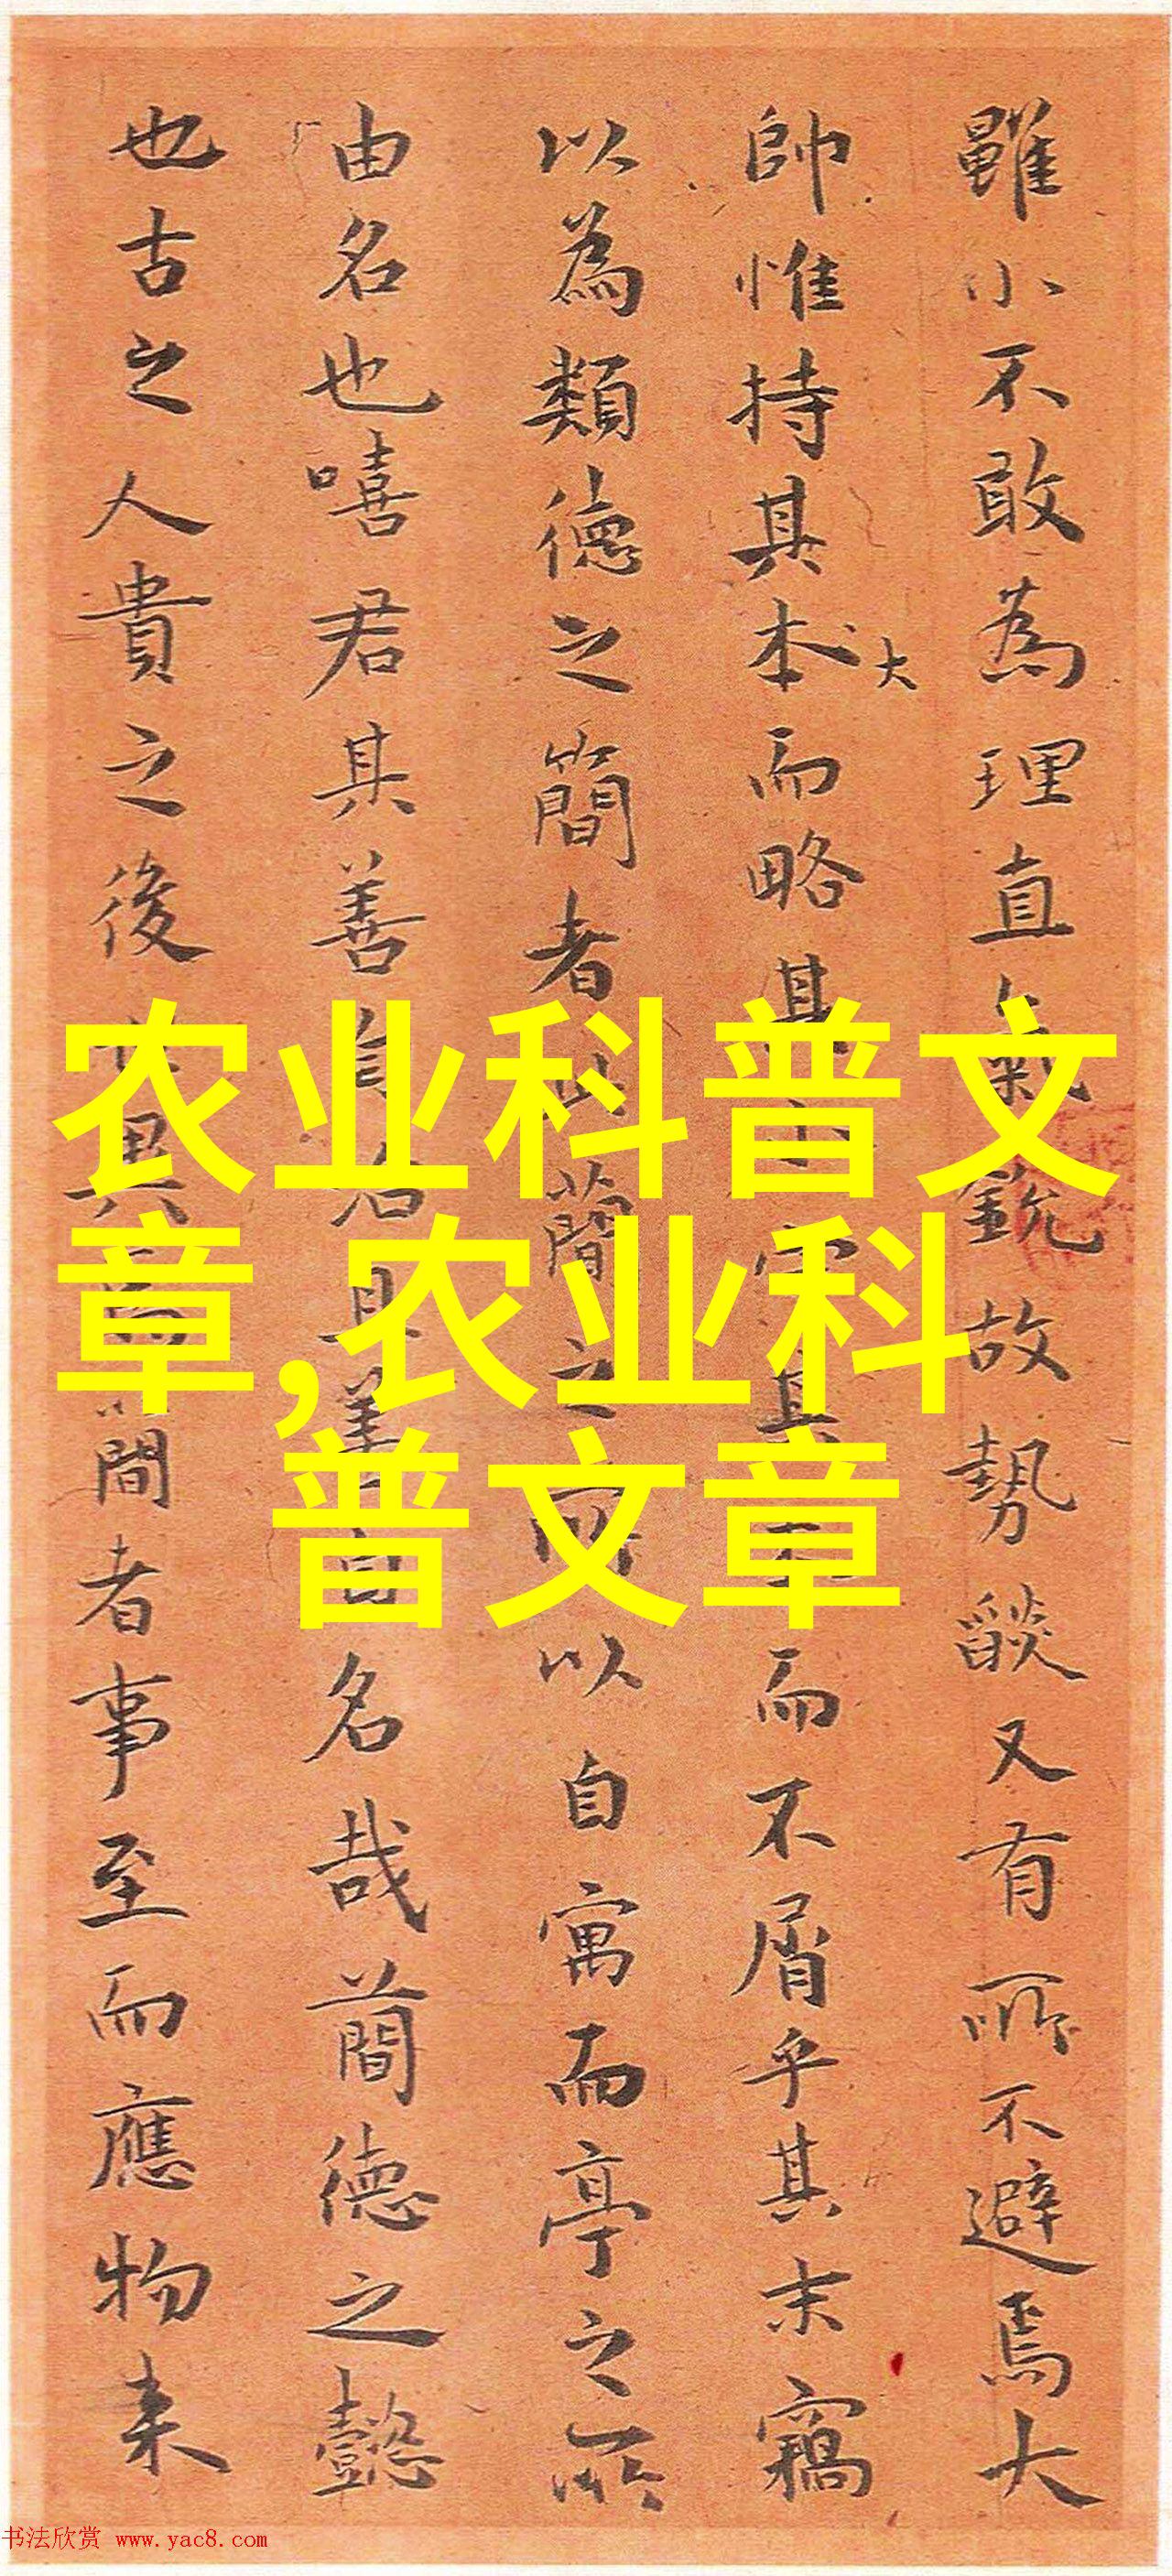 雖小不敢為理直氣銳故勢燄又有所不避焉大
帥惟持其本大而略其小其而不屑乎其末竊
以為類德之簡者簡之所以自寓而亭之所
由名也嘻君其善自名其善自名哉簡德之懿
也古之人貴之後異簡者事至而應物来
农业科普文
章,农业科
普文章
书法欣赏 www.yac8.com